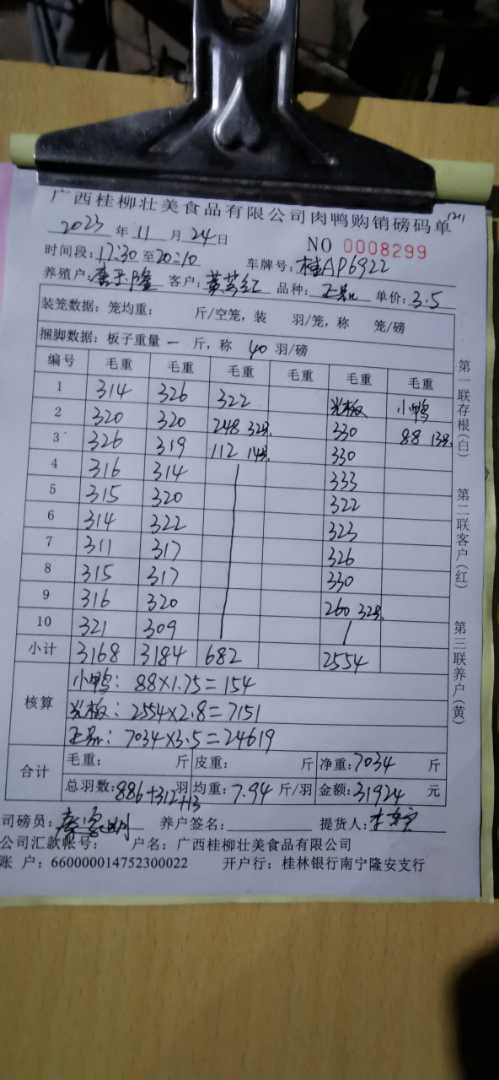 广西桂柳壮美食品有限公司肉鸭购销磅码单
2023年11月24日 NO 0008299
时间段：17:30至20:10 车牌号：桂AP6922
养殖户： 隆 客户：黄 红 品种：正品 单价：3.5
装笼数据：笼均重： 斤/空笼，装 羽/笼，称 笼/磅
捆脚数据：板子重量 一 斤，称 40 羽/磅
编号 毛重 毛重 毛重 毛重 毛重 毛重
1 314 326 322 光板 小鸭
2 320 320 248 32只 330 88 13只
3 326 319 112 14只 330
4 316 314 333
5 315 320 322
6 314 322 323
7 311 317 326
8 315 317 330
9 316 320 260 32只
10 321 309
小计 3168 3184 682 2554
核算
小鸭：88×1.75=154
光板：2554×2.8=7151
正品：7034×3.5=24619
合计
毛重： 斤 皮重： 斤 净重：7034 斤
总羽数：886+312+13 羽 均重：7.94 斤/羽 金额：31924 元
司磅员： 养户签名： 提货人：
公司汇款帐号： 户名：广西桂柳壮美食品有限公司
账 户：660000014752300022 开户行：桂林银行南宁隆安支行
第一联存根(白)
第二联客户(红)
第三联养户(黄)